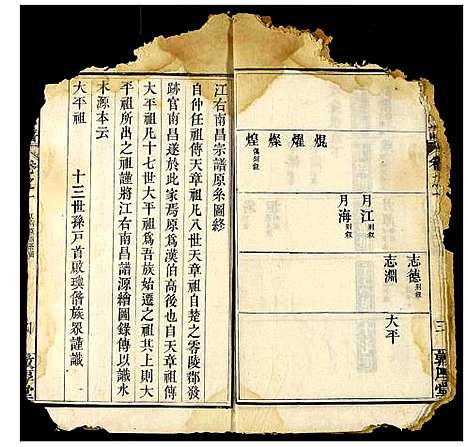 焜
燿
燦
煌
月江 別敘
月海 別敘
志德 別敘
志淵
大平
三
敦厚堂
江右南昌宗譜原系圖終
自仲任祖傳天章祖凡八世天章祖自楚之零陵郡發
跡官南昌遂於此家焉原爲漢伯高後也自天章祖傳
大平祖凡十七世大平祖爲吾族始遷之祖其上則大
平祖所出之祖謹將江右南昌譜源繪圖錄傳以識水
木源本云
十三世孫戸首啟璵偕族眾謹識
大平祖
四
敦厚堂